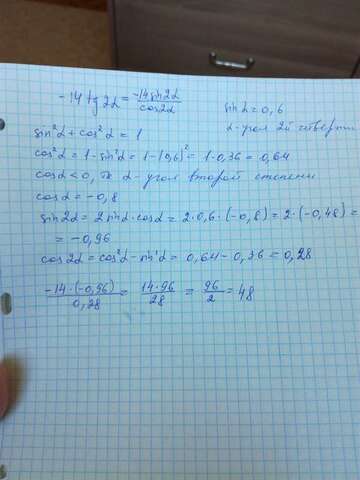 -14 tg 2α = -14 sin2α / cos2α
sin α = 0,6
α - угол 2й четверти
sin²α + cos²α = 1
cos²α = 1 - sin²α = 1 - (0,6)² = 1 - 0,36 = 0,64
cosα < 0, тк α - угол второй степени
cosα = -0,8
sin2α = 2 sinα · cosα = 2 · 0,6 · (-0,8) = 2 · (-0,48) =
= -0,96
cos2α = cos²α - sin²α = 0,64 - 0,36 = 0,28
-14 · (-0,96) / 0,28 = 14 · 96 / 28 = 96 / 2 = 48